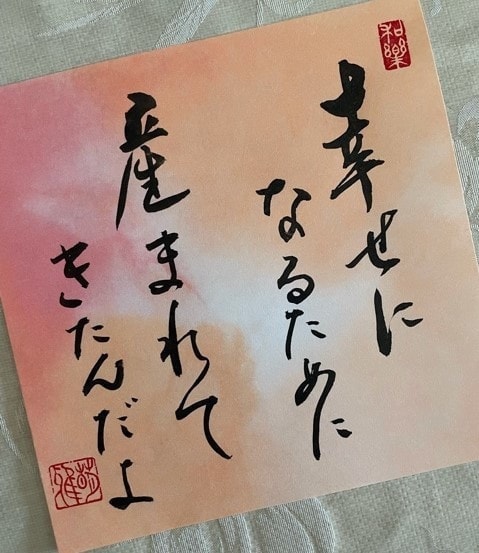 幸せに
なるために
産まれて
きたんだよ
和樂